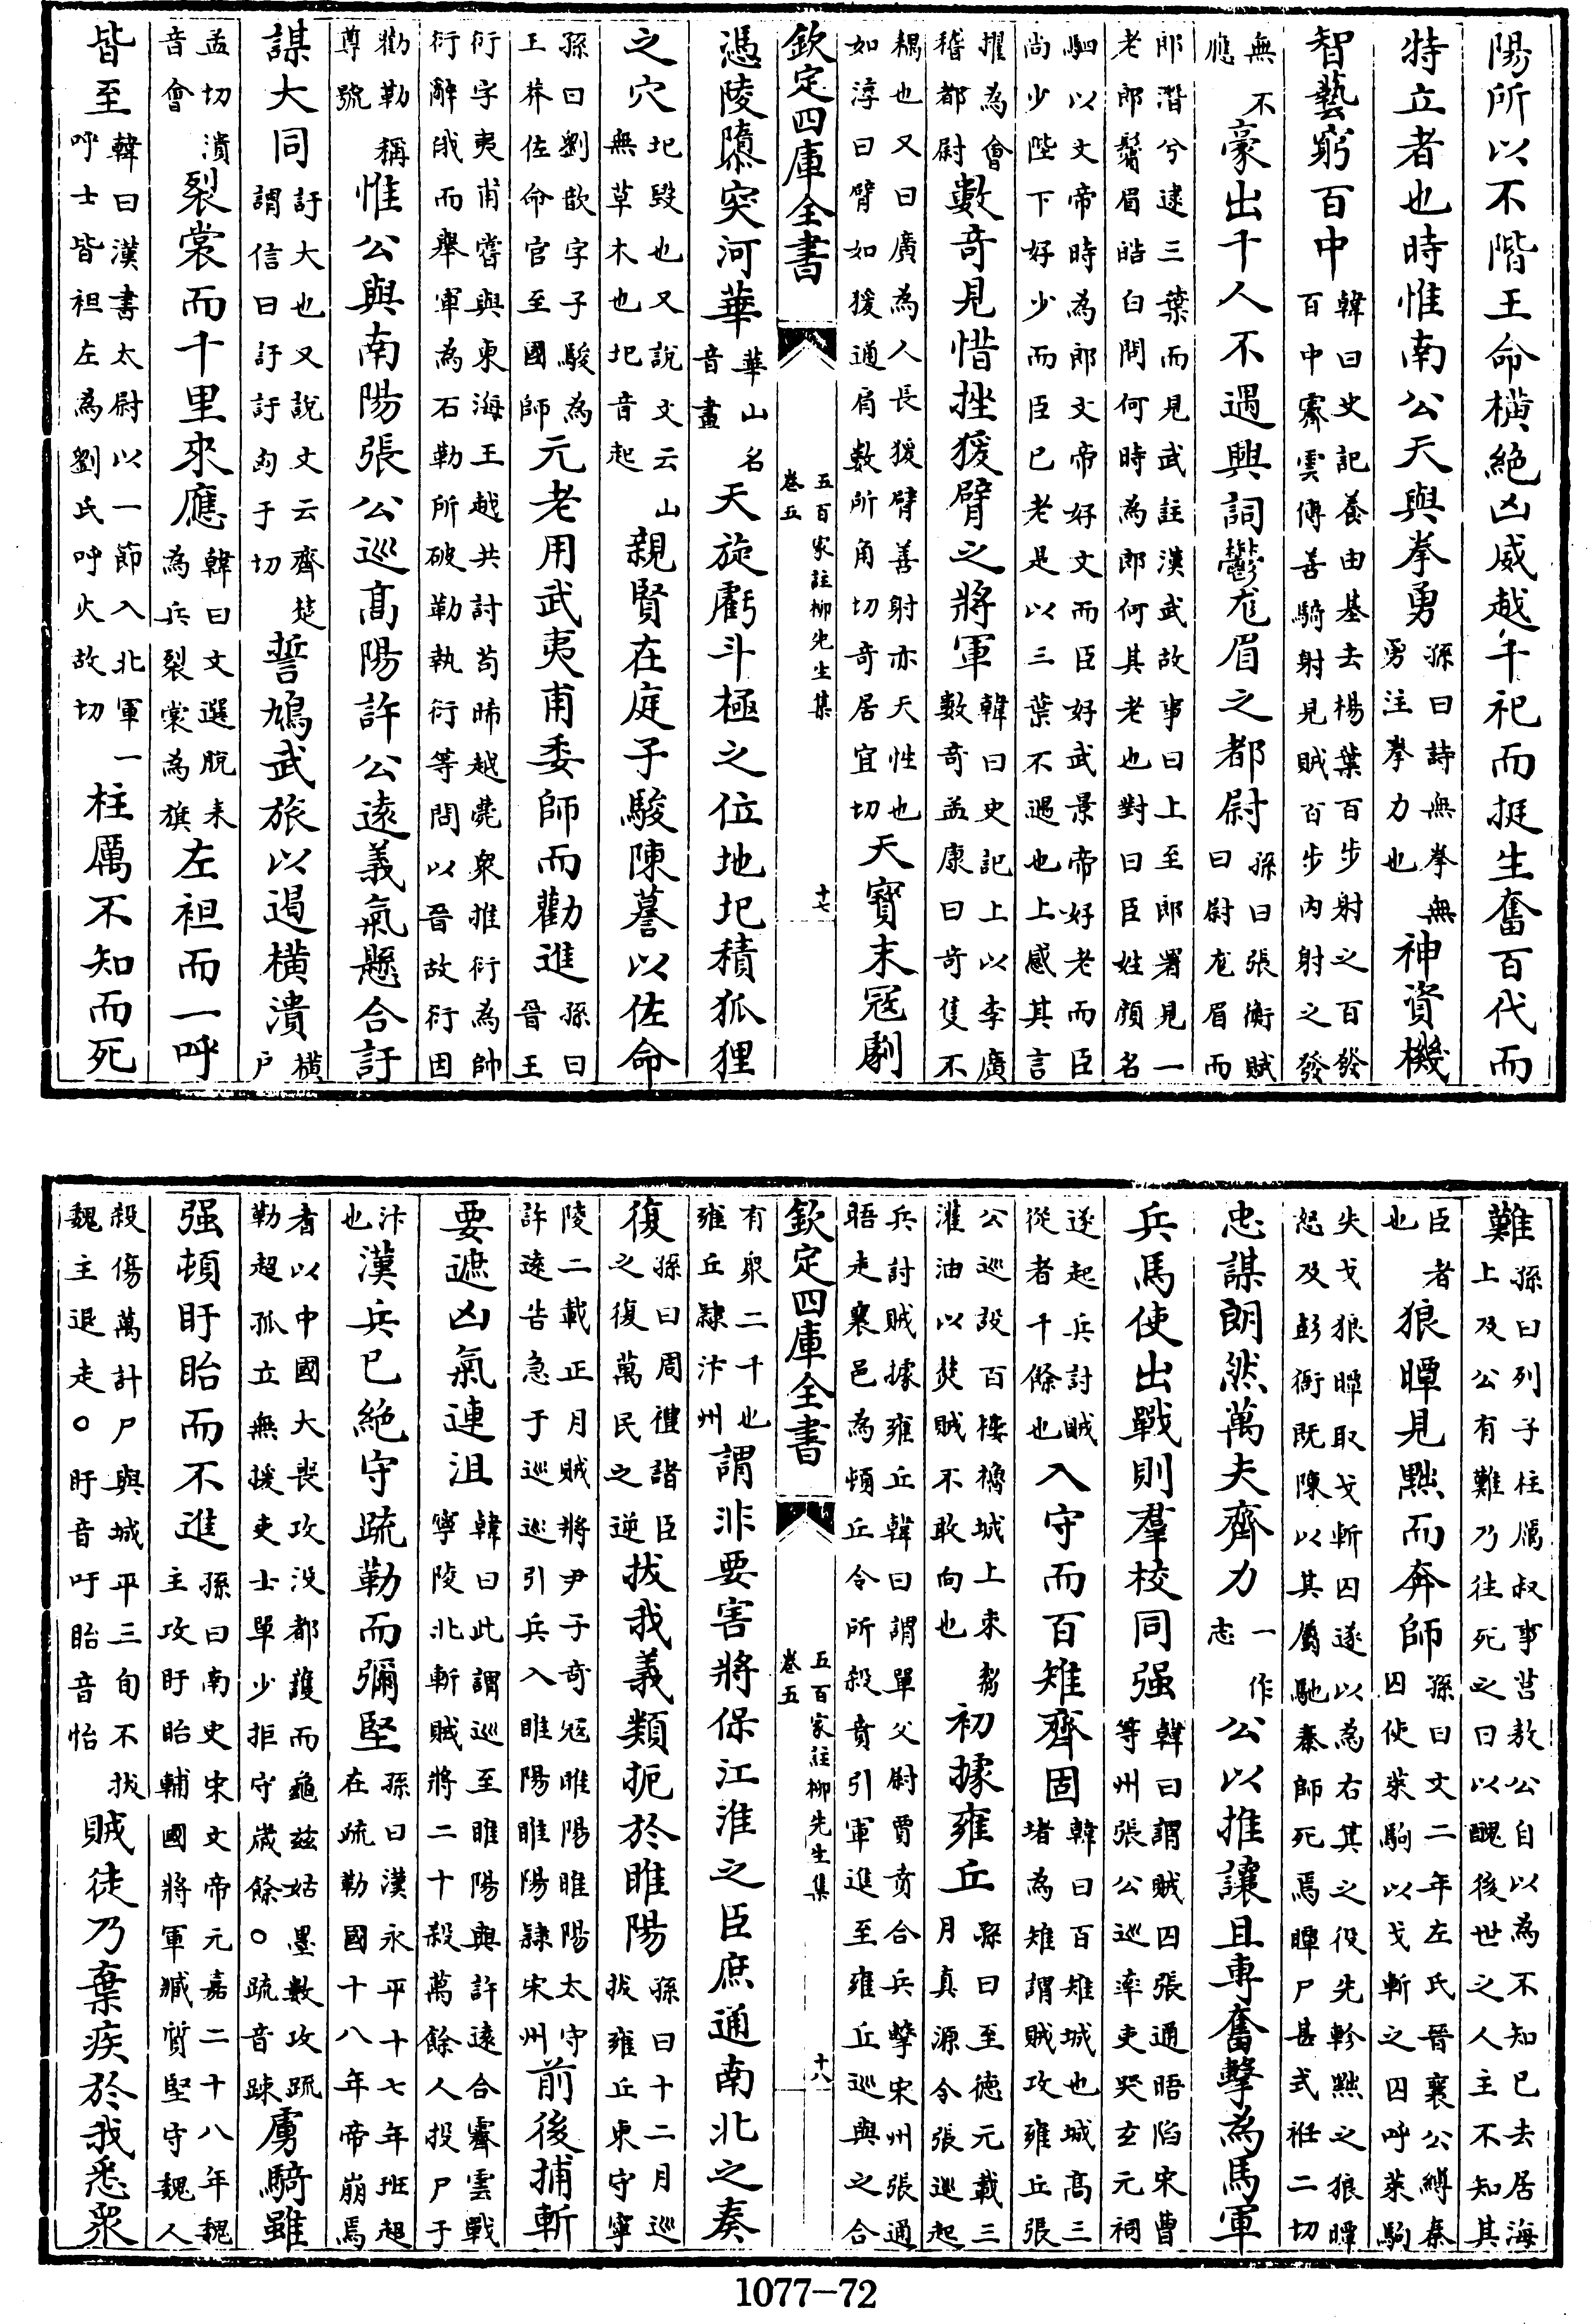 陽所以不階王命横絶凶威越千祀而挺生奮百代而
特立者也時惟南公天與拳勇孫曰詩無拳無勇注拳力也神資機
智藝窮百中韓曰史記養由基去楊葉百步射之百發百中霽雲傳善騎射見賊百步内射之發
無不應豪出千人不遇興詞鬱尨眉之都尉孫曰張衡賦曰尉尨眉而
郎潛兮逮三葉而見武註漢武故事曰上至郎署見一老郎鬢眉皓白問何時為郎何其老也對曰臣姓顔名
駟以文帝時為郎文帝好文而臣好武景帝好老而臣尚少陛下好少而臣已老是以三葉不遇也上感其言
擢為會稽都尉數奇見惜挫猨臂之將軍韓曰史記上以李廣數奇孟康曰奇隻不
耦也又曰廣為人長猨臂善射亦天性也如淳曰臂如猨通肩數所角切奇居宜切天寶末冦劇
欽定四庫全書 五百家註柳先生集 卷五 十七
憑陵隳突河華華山名音畫天旋虧斗極之位地圮積狐狸
之穴圮毀也又說文云山無草木也圮音起親賢在庭子駿陳謩以佐命
孫曰劉歆字子駿為王莽佐命官至國師元老用武夷甫委師而勸進孫曰晉王
衍字夷甫嘗與東海王越共討茍晞越薨衆推衍為帥衍辭俄而舉軍為石勒所破勒執衍等問以晉故衍因
勸勒稱尊號惟公與南陽張公巡髙陽許公逺義氣懸合訏
謀大同訏大也又說文云齊楚謂信曰訏訏匈于切誓鳩武旅以遏横潰横户
孟切潰音會裂裳而千里來應韓曰文選脱耒為兵裂裳為旗左袒而一呼
皆至韓曰漢書太尉以一節入北軍一呼士皆袒左為劉氏呼火故切柱厲不知而死
難孫曰列子柱厲叔事莒敖公自以為不知已去居海上及公有難乃往死之曰以醜後世之人主不知其
臣者也狼瞫見黜而奔師孫曰文二年左氏晉襄公縛秦囚使萊駒以戈斬之囚呼萊駒
失戈狼瞫取戈斬囚遂以為右其之役先軫黜之狼瞫怒及彭衙既陳以其屬馳秦師死焉瞫尸甚式袵二切
忠謀朗然萬夫齊力一作志公以推讓且專奮擊為馬軍
兵馬使出戰則羣校同强韓曰謂賊囚張通晤陷宋曹等州張公巡率吏哭玄元祠
遂起兵討賊從者千餘也入守而百雉齊固韓曰百雉城也城髙三堵為雉謂賊攻雍丘張
公巡設百樓櫓城上束芻灌油以焚賊不敢向也初據雍丘孫曰至德元載三月真源令張巡起
兵討賊據雍丘韓曰謂單父尉賈賁合兵擊宋州張通晤走襄邑為頓丘令所殺賁引軍進至雍丘巡與之合
欽定四庫全書 五百家註柳先生集 卷五 十八
有衆二千也雍丘隸汴州謂非要害將保江淮之臣庶通南北之奏
復孫曰周禮諸臣之復萬民之逆拔我義類扼於睢陽孫曰十二月巡拔雍丘東守寧
陵二載正月賊將尹子竒冦睢陽睢陽太守許逺告急于巡巡引兵入睢陽睢陽隸宋州前後捕斬
要遮凶氣連沮韓曰此謂巡至睢陽與許逺合霽雲戰寧陵北斬賊將二十殺萬餘人投尸于
汴也漢兵已絶守疏勒而彌堅孫曰漢永平十七年班超在疏勒國十八年帝崩焉
者以中國大喪攻没都護而龜兹姑墨數攻疏勒超孤立無援吏士單少拒守歲餘○疏音踈虜騎雖
强頓盱眙而不進孫曰南史宋文帝元嘉二十八年魏主攻盱眙輔國將軍臧質堅守魏人
殺傷萬計尸與城平三旬不拔魏主退走○盱音吁眙音怡賊徒乃棄疾於我悉衆
1077—72